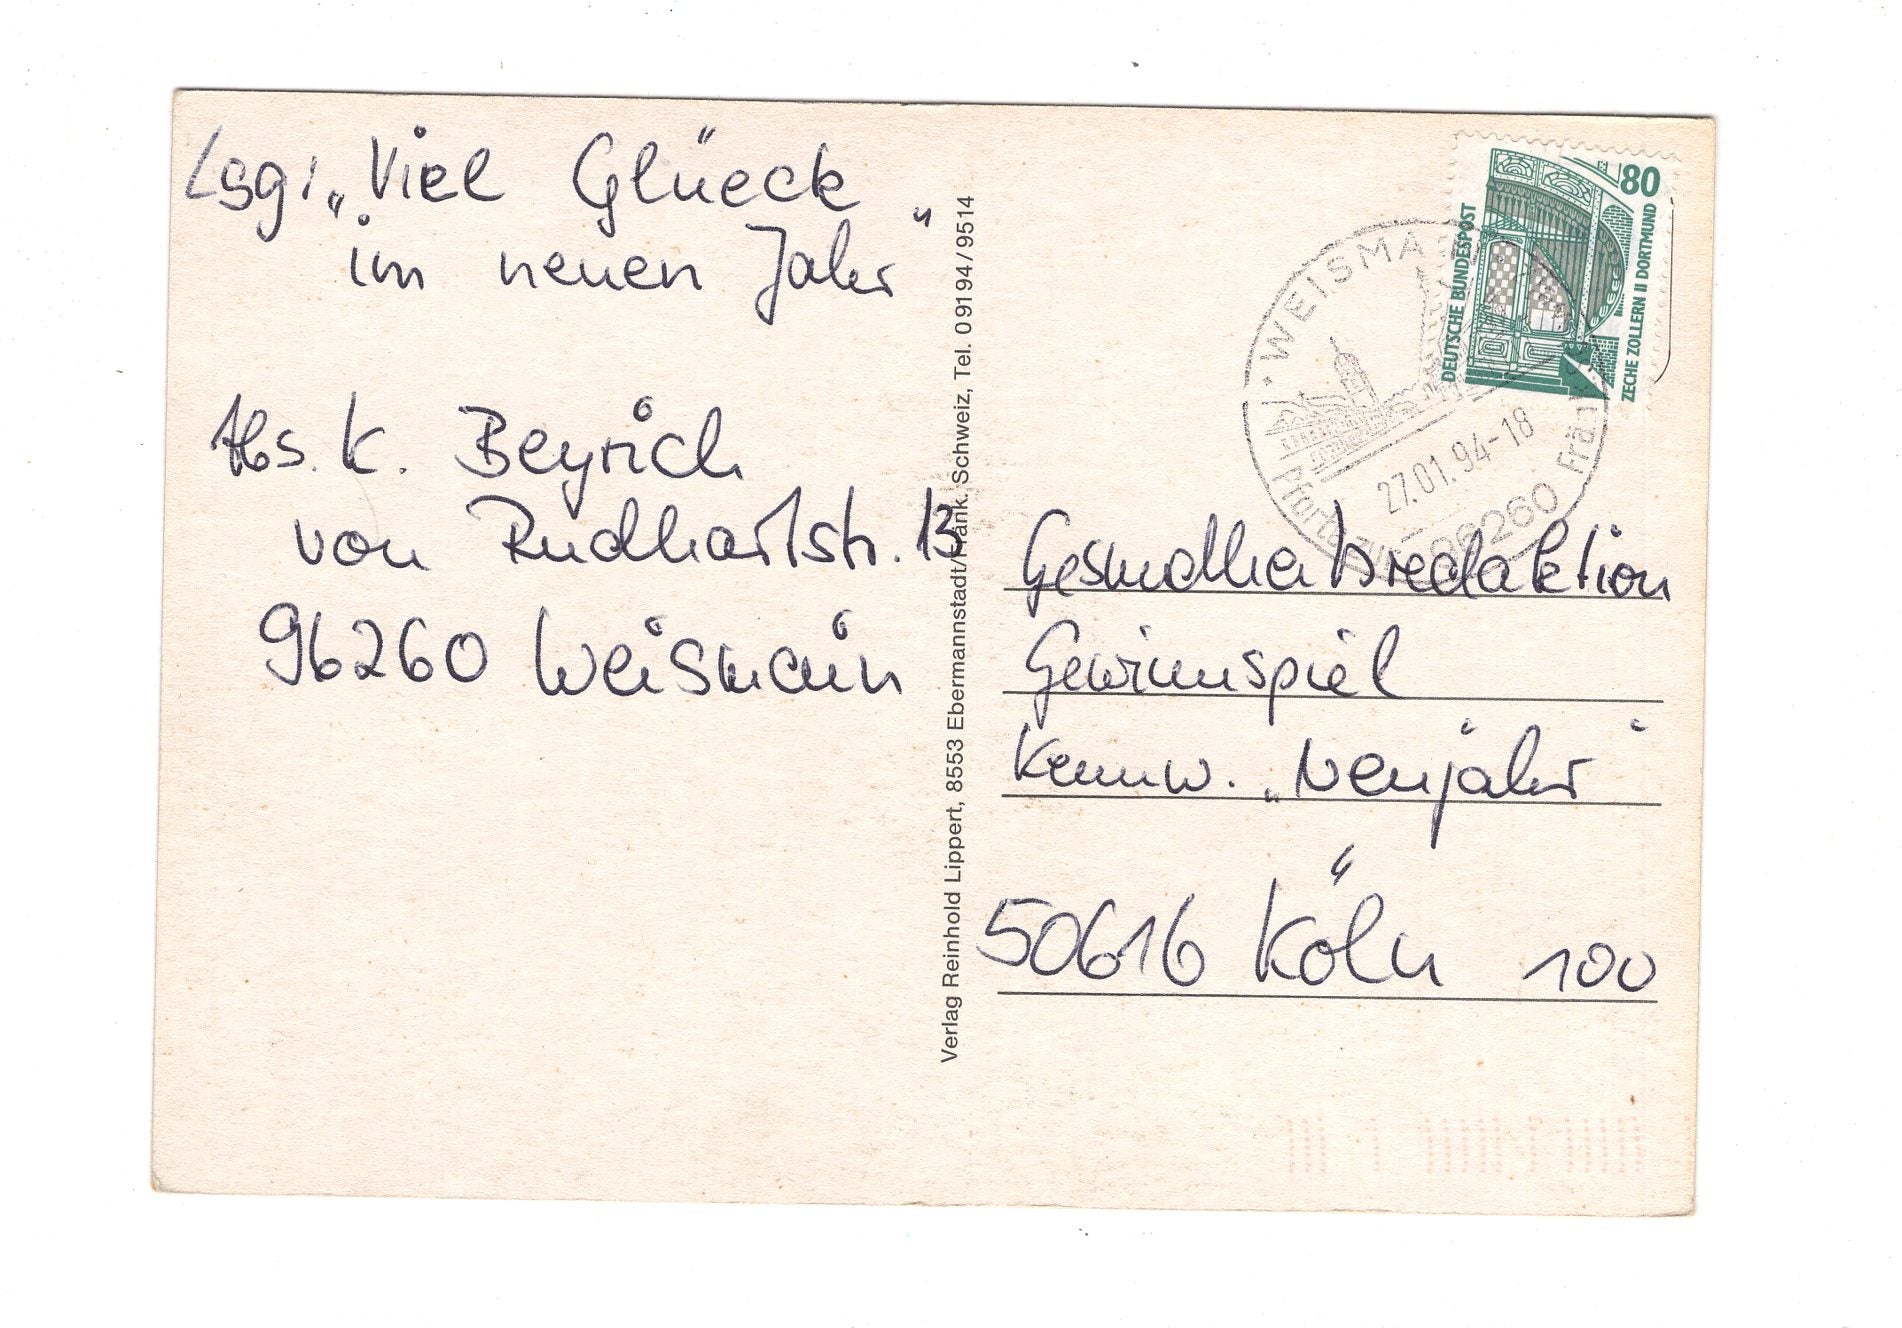 Lsg: „Viel Glüeck
im neuen Jahr"
Abs. K. Beyrich
von Rudhartstr. 13
96260 Weismain
Verlag Reinhold Lippert, 8553 Ebermannstadt/Fränk. Schweiz, Tel. 09194/9514
80
DEUTSCHE BUNDESPOST
ZECHE ZOLLERN II DORTMUND
WEISMAIN
27.01.94-18
96260
Gesundheitsredaktion
Gewinnspiel
Kennw. „Neujahr"
50616 Köln 100